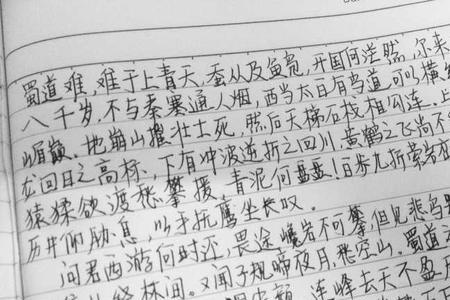 蜀道难,难于上青天,蚕丛及鱼凫,开国何茫然,尔来
八千岁,不与秦塞通人烟,西当太白有鸟道,可以横绝
峨眉巅。地崩山摧壮士死,然后天梯石栈相勾连。上
龙回日之高标,下有冲波逆折之回川,黄鹤之飞尚不
猿猱欲渡愁攀援,青泥何盘盘!百步九折萦岩
历井仰胁息,以手抚膺坐长叹。
问君西游何时还,畏途巉岩不可攀,但见悲鸟
绕林间。又闻子规啼夜月,愁空山。蜀道
连峰去天不盈